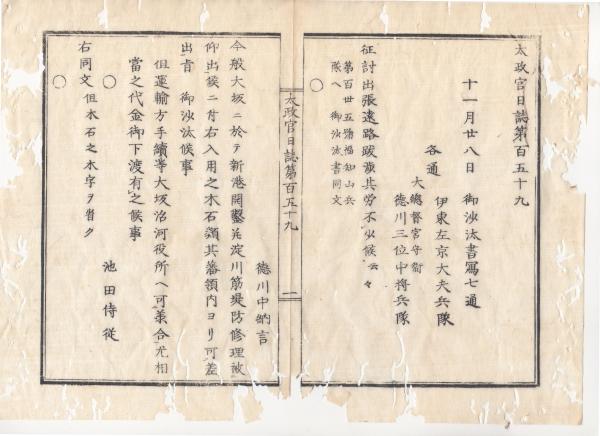 太政官日誌第百五十九
十一月廿八日 御沙汰書寫七通
伊東左京大夫兵隊
各通
大總督宮守衞
徳川三位中将兵隊
征討出張遠路跋渉其労不少候云々
第百廿五號福知山兵
隊ヘ御沙汰書同文
○
太政官日誌第百五十九
一
徳川中納言
今般大坂ニ於テ新港開鑿并淀川筋堤防修理被
仰出候ニ付右入用之木石類其藩領内ヨリ可差
出旨 御沙汰候事
但運輸方手續等大坂治河役所ヘ可承合尤相
當之代金御下渡有之候事
○
池田侍從
右同文 但木石之木字ヲ省ク
○